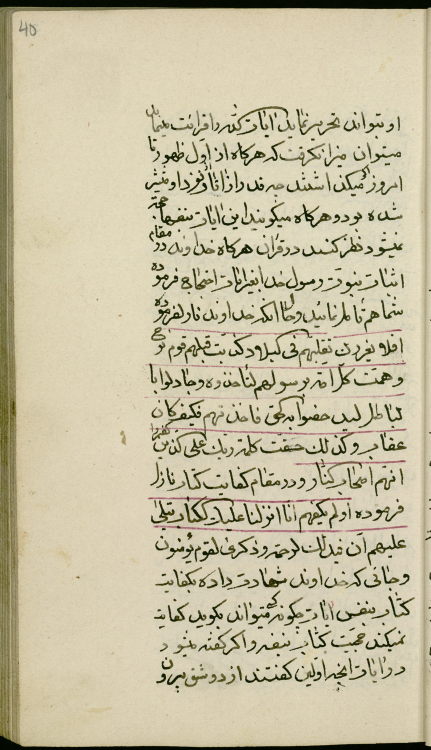 40
او بتواند تحریر نماید آیات الله را قرائت مینماید
میتوان میزان گرفت که هر گاه از اول ظهور تا
امروز میگذاشتند چه قدر از آثار او نزد او منتشر
شده بود و هر گاه میگویند این آیات بنفسها حجت
نمیشود نظر کنند در قرآن هر گاه خداوند در مقام
اثبات نبوت رسول خدا بغیر آیات احتجاج فرموده
شما هم تأمل نمائید و حال آنکه خداوند نازل فرموده
فلا یغررک تقلبهم فی البلاد کذبت قبلهم قوم نوح
وهمت کل امة برسولهم لیأخذوه وجادلوا با
لباطل لیدحضوا به الحق فاخذتهم فکیف کان
عقاب وکذلک حقت کلمة ربک علی الذین کفروا
انهم اصحاب النار و در مقام کفایت کتاب نازل
فرموده اولم یکفهم انا انزلنا علیک الکتاب یتلی
علیهم ان فی ذلک لرحمة وذکری لقوم یؤمنون
و جائی که خداوند شهادت داده بکفایت
کتاب بنفس آیات چگونه کسی میتواند بگوید کفایت
نمیکند حجیت کتاب بنفسه و اگر گفته میشود
در آیات آنچه اولین گفتند از دو شق بیرون